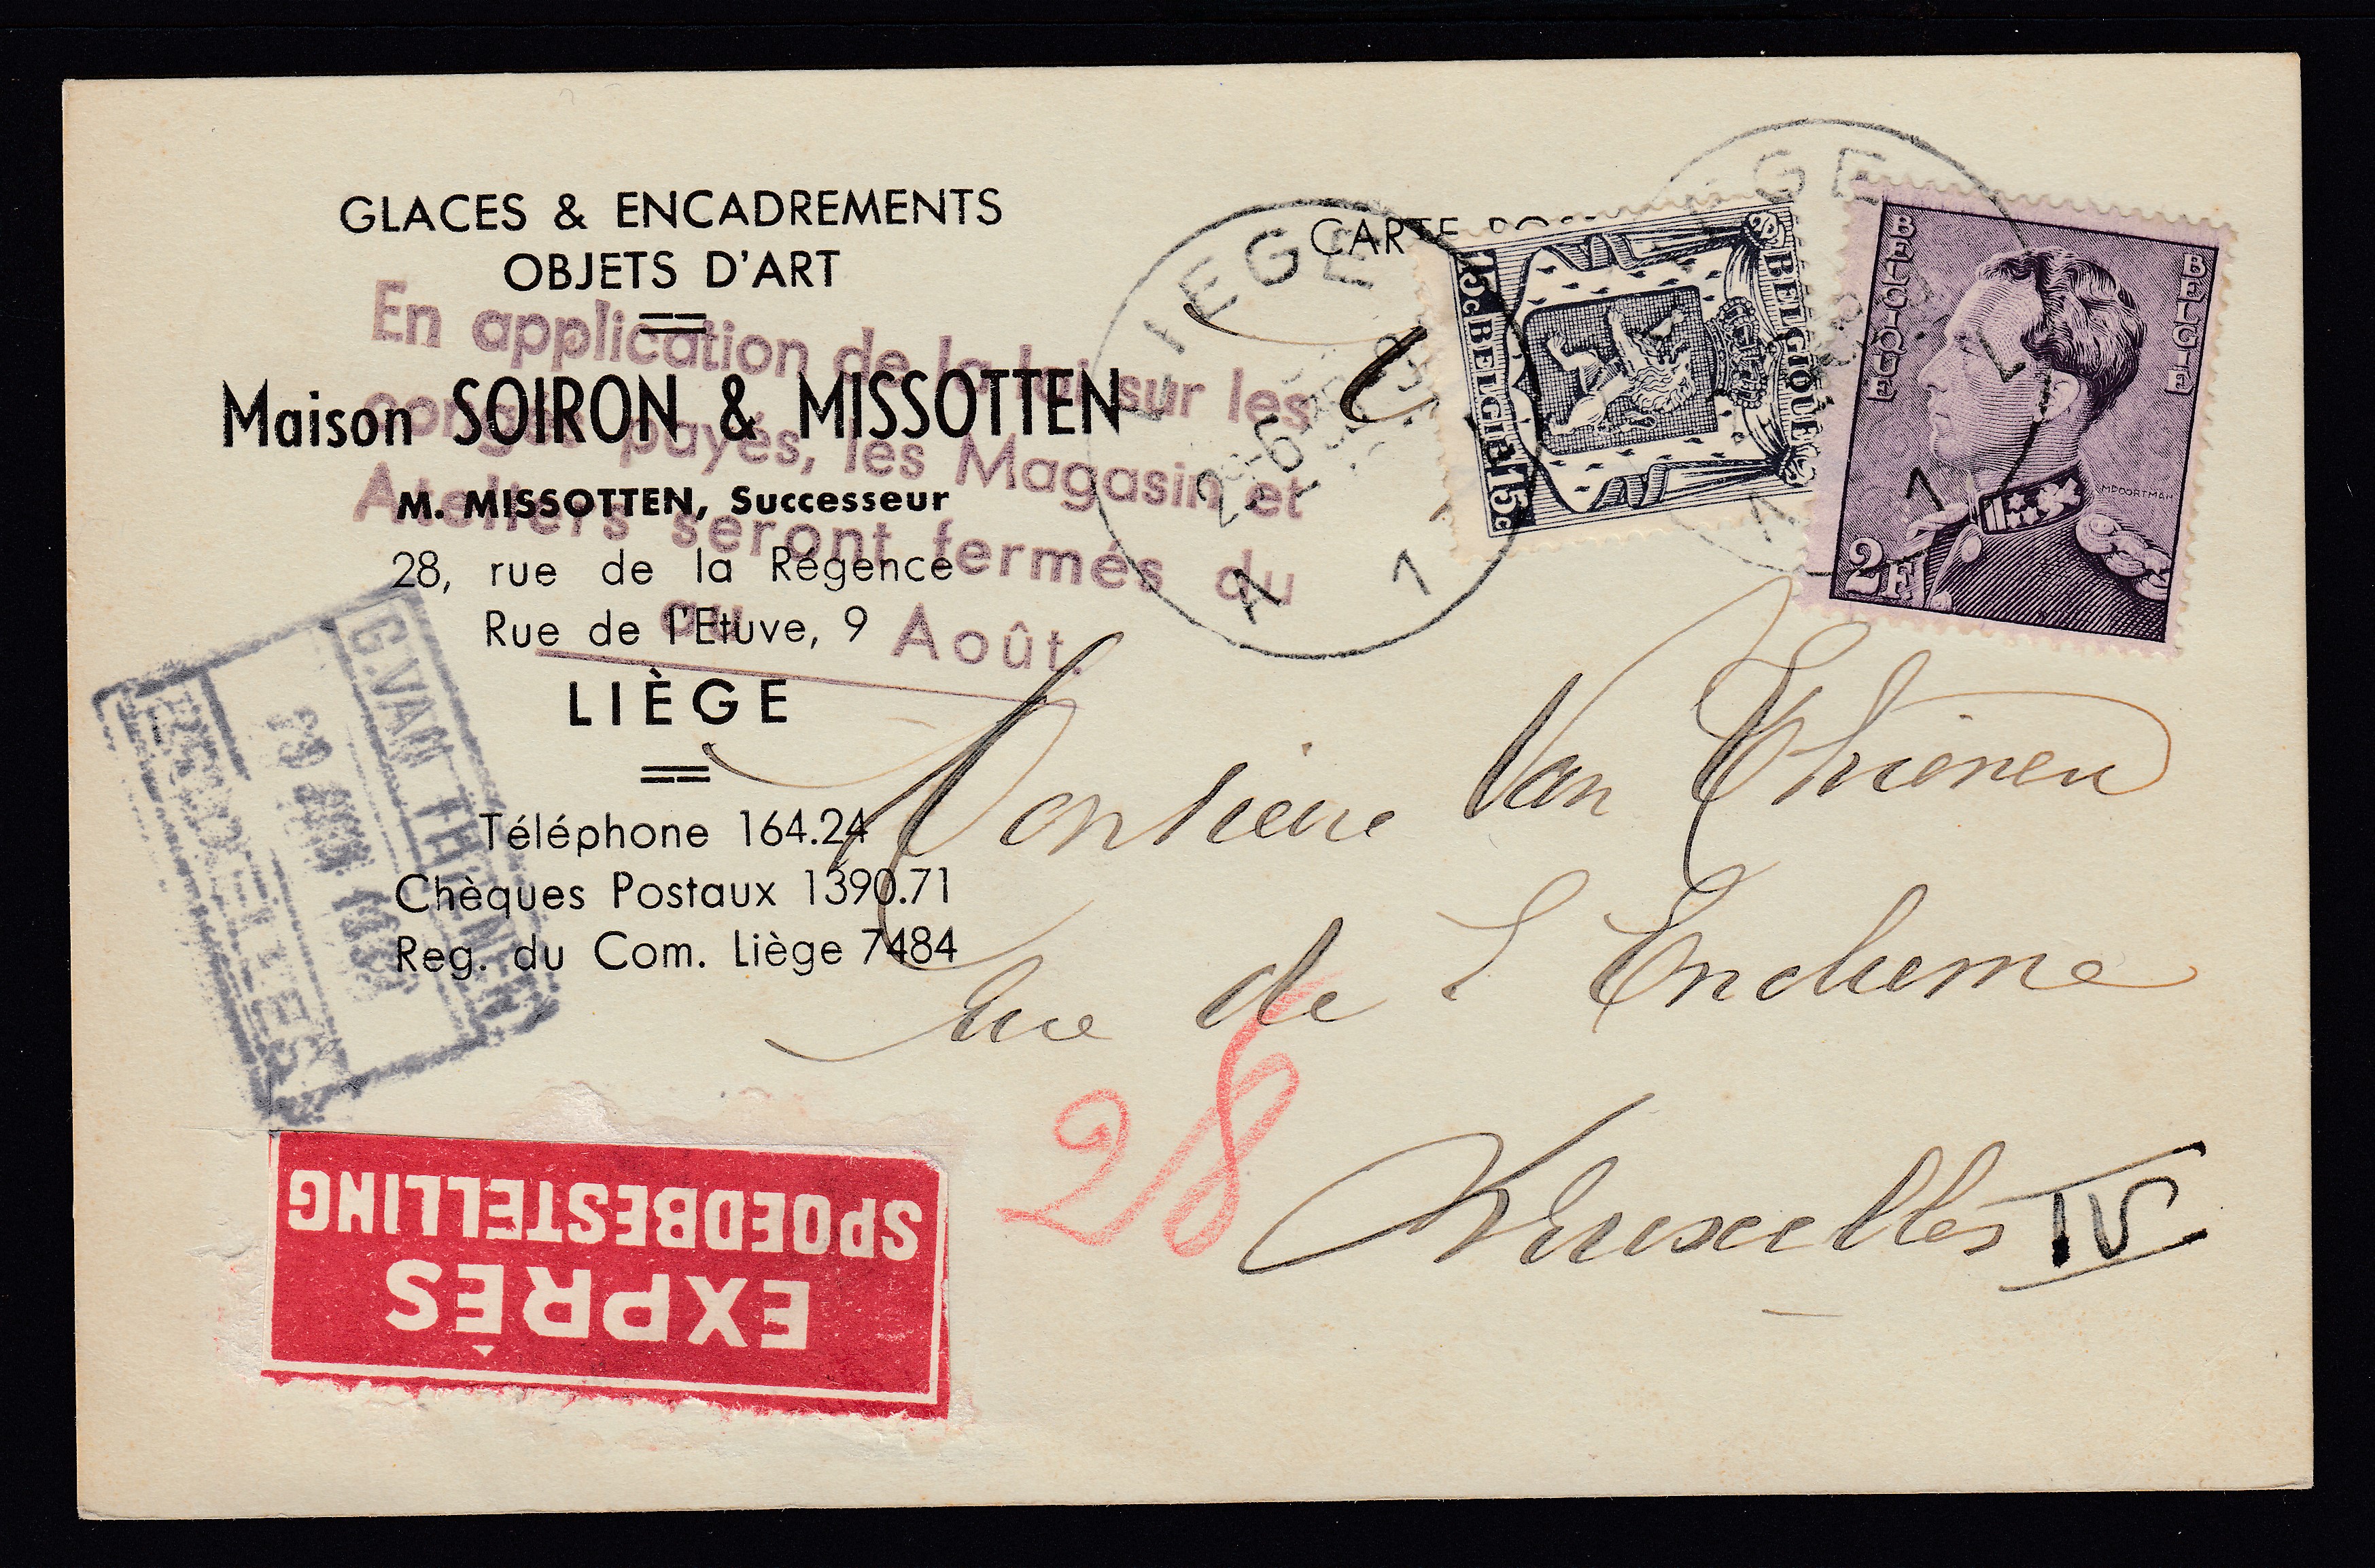 GLACES & ENCADREMENTS
OBJETS D'ART
Maison SOIRON & MISSOTTEN
M. MISSOTTEN, Successeur
28, rue de la Régence
Rue de l'Etuve, 9
LIÈGE
Téléphone 164.24
Chèques Postaux 1390.71
Reg. du Com. Liège 7484
En application de la loi sur les
congés payés, les Magasin et
Ateliers seront fermés du
au Août.
CARTE
LIEGE
A 1
LIEGE
1 A
15c BELGIE 15c
BELGIQUE
BELGIQUE
BELGIE
MPOORTMAN
2F
G. VAN THIENEN
BRUXELLES
Monsieur Van Thienen
rue de L'Enclume
28
Bruxelles IV
EXPRÈS
SPOEDBESTELLING